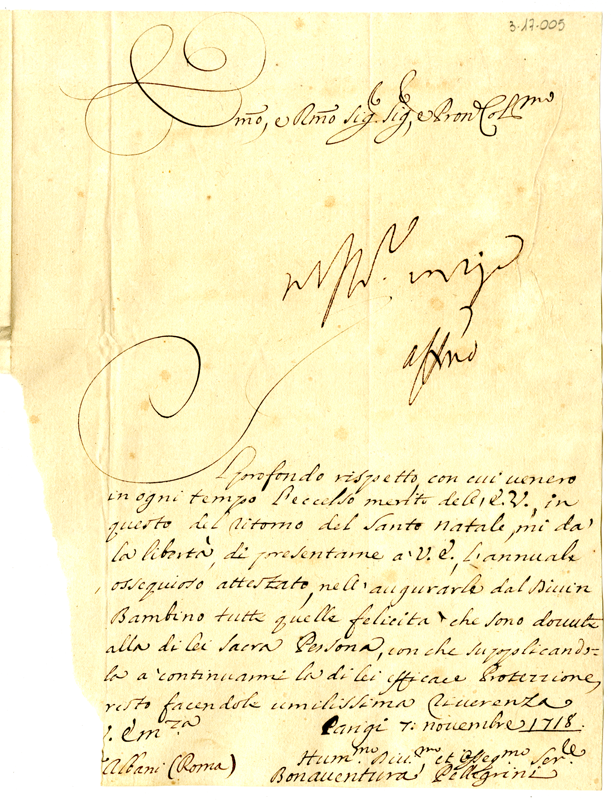 3.17.005
Emo, e Rmo Sig. Sig, e Pron Colmo
affmo
Il profondo rispetto, con cui venero
in ogni tempo l'eccelso merito dell'E.V., in
questo del ritorno del Santo natale, mi da'
la libertà, di presentarne a' V. E., l'annuale
ossequioso attestato, nell'augurarle dal Divin
Bambino tutte quelle felicita' che sono dovute
alla di lei sacra Persona, con che supplicando=
la a' continuarmi la di lei efficace Protezzione,
resto facendole umilissima riverenza
V. Emza Parigi 7: novembre 1718.
Albani (Roma) Hummo Divmo et Ossegmo Serle
Bonaventura Pellegrini